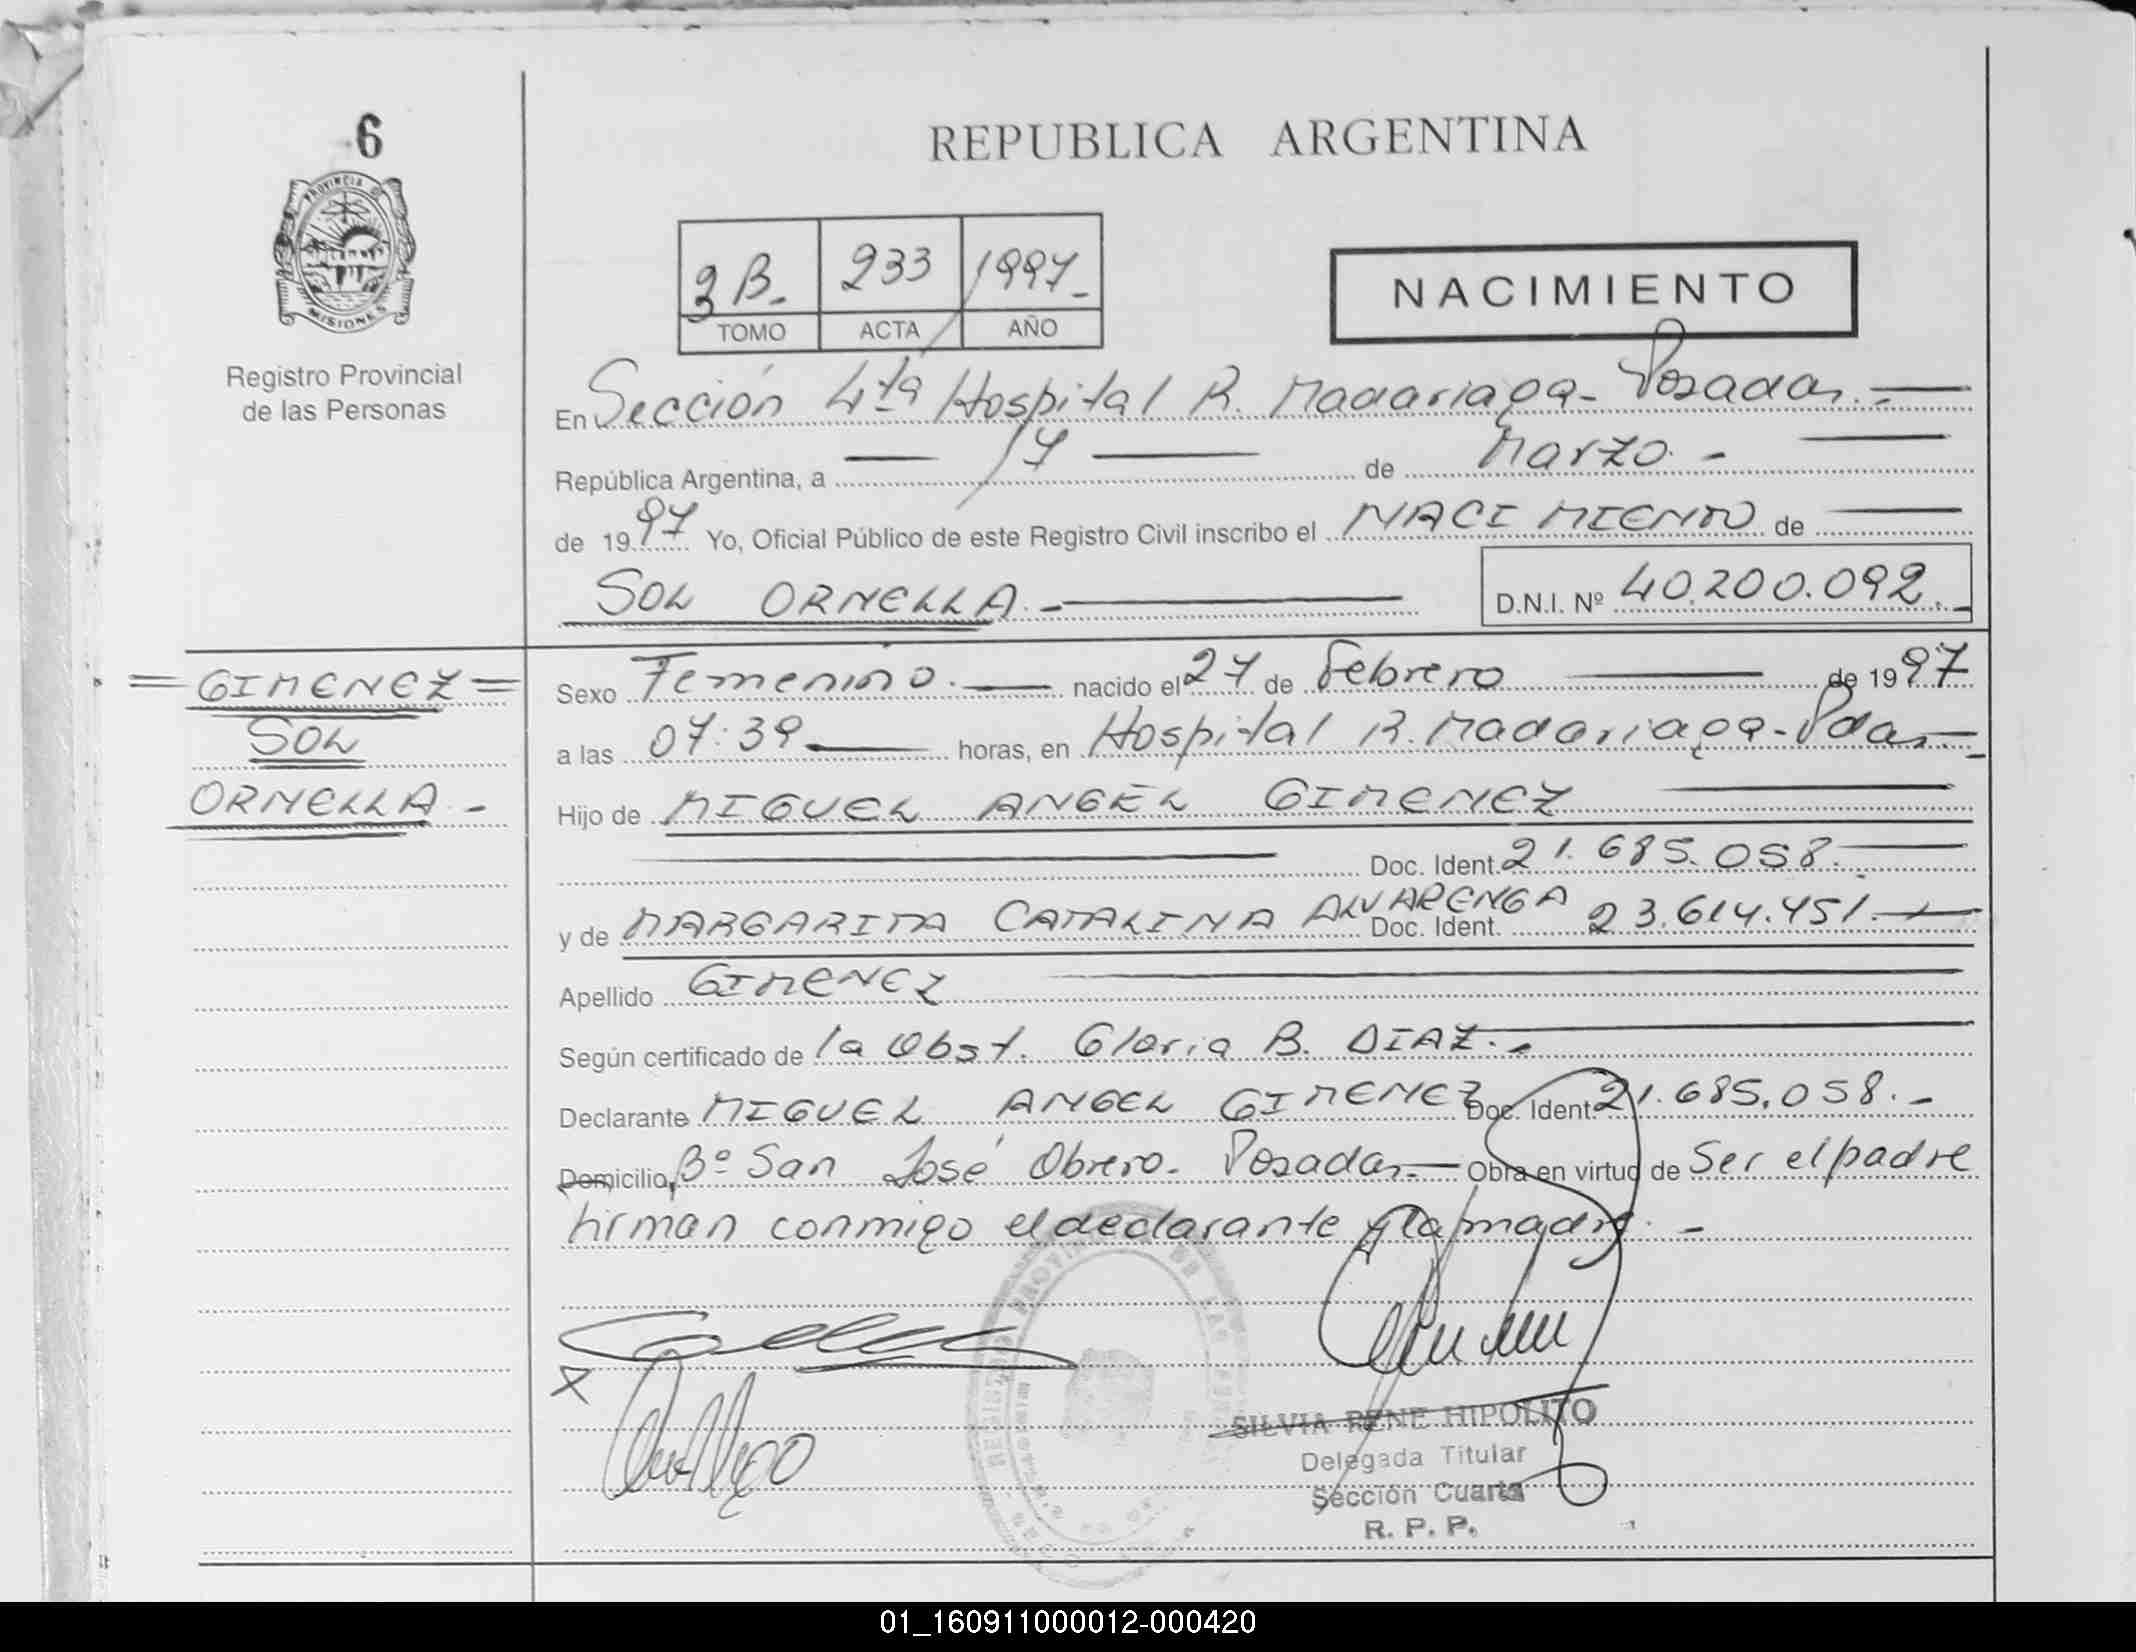 6
REPUBLICA ARGENTINA
PROVINCIA DE
MISIONES
Registro Provincial
de las Personas
3 B.- 233 1997-
TOMO ACTA AÑO
NACIMIENTO
En Sección 4ta Hospital R. Madariaga - Posadas.-
República Argentina, a 17 de Marzo.-
de 1997 Yo, Oficial Público de este Registro Civil inscribo el NACIMIENTO de
SOL ORNELLA.- D.N.I. Nº 40.200.092.-
=GIMENEZ=
SOL
ORNELLA.-
Sexo Femenino.- nacido el 27 de Febrero de 1997
a las 07:39 horas, en Hospital R. Madariaga - Pdas.-
Hijo de MIGUEL ANGEL GIMENEZ
Doc. Ident. 21.685.058.-
y de MARGARITA CATALINA ALVARENGA Doc. Ident. 23.614.451.-
Apellido GIMENEZ
Según certificado de la Obst. Gloria B. DIAZ.-
Declarante MIGUEL ANGEL GIMENEZ Doc. Ident. 21.685.058.-
Domicilio, Bº San José Obrero. Posadas.- Obra en virtud de Ser el padre
firman conmigo el declarante y la madre.-
SILVIA RENE HIPOLITO
Delegada Titular
Sección Cuarta
R. P. P.
01_160911000012-000420